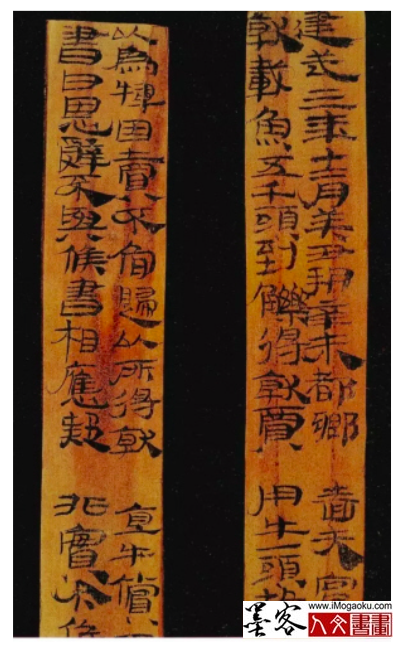 建武三年十二月癸丑朔辛未都鄉 嗇夫宮
就載魚五千頭到觻得就賈 用牛一頭
以為田賣不肯歸以所得就 直牛償
書曰恩辭不與候書相應疑 非實今候
墨客
www.iMogaoku.com
人文書畫